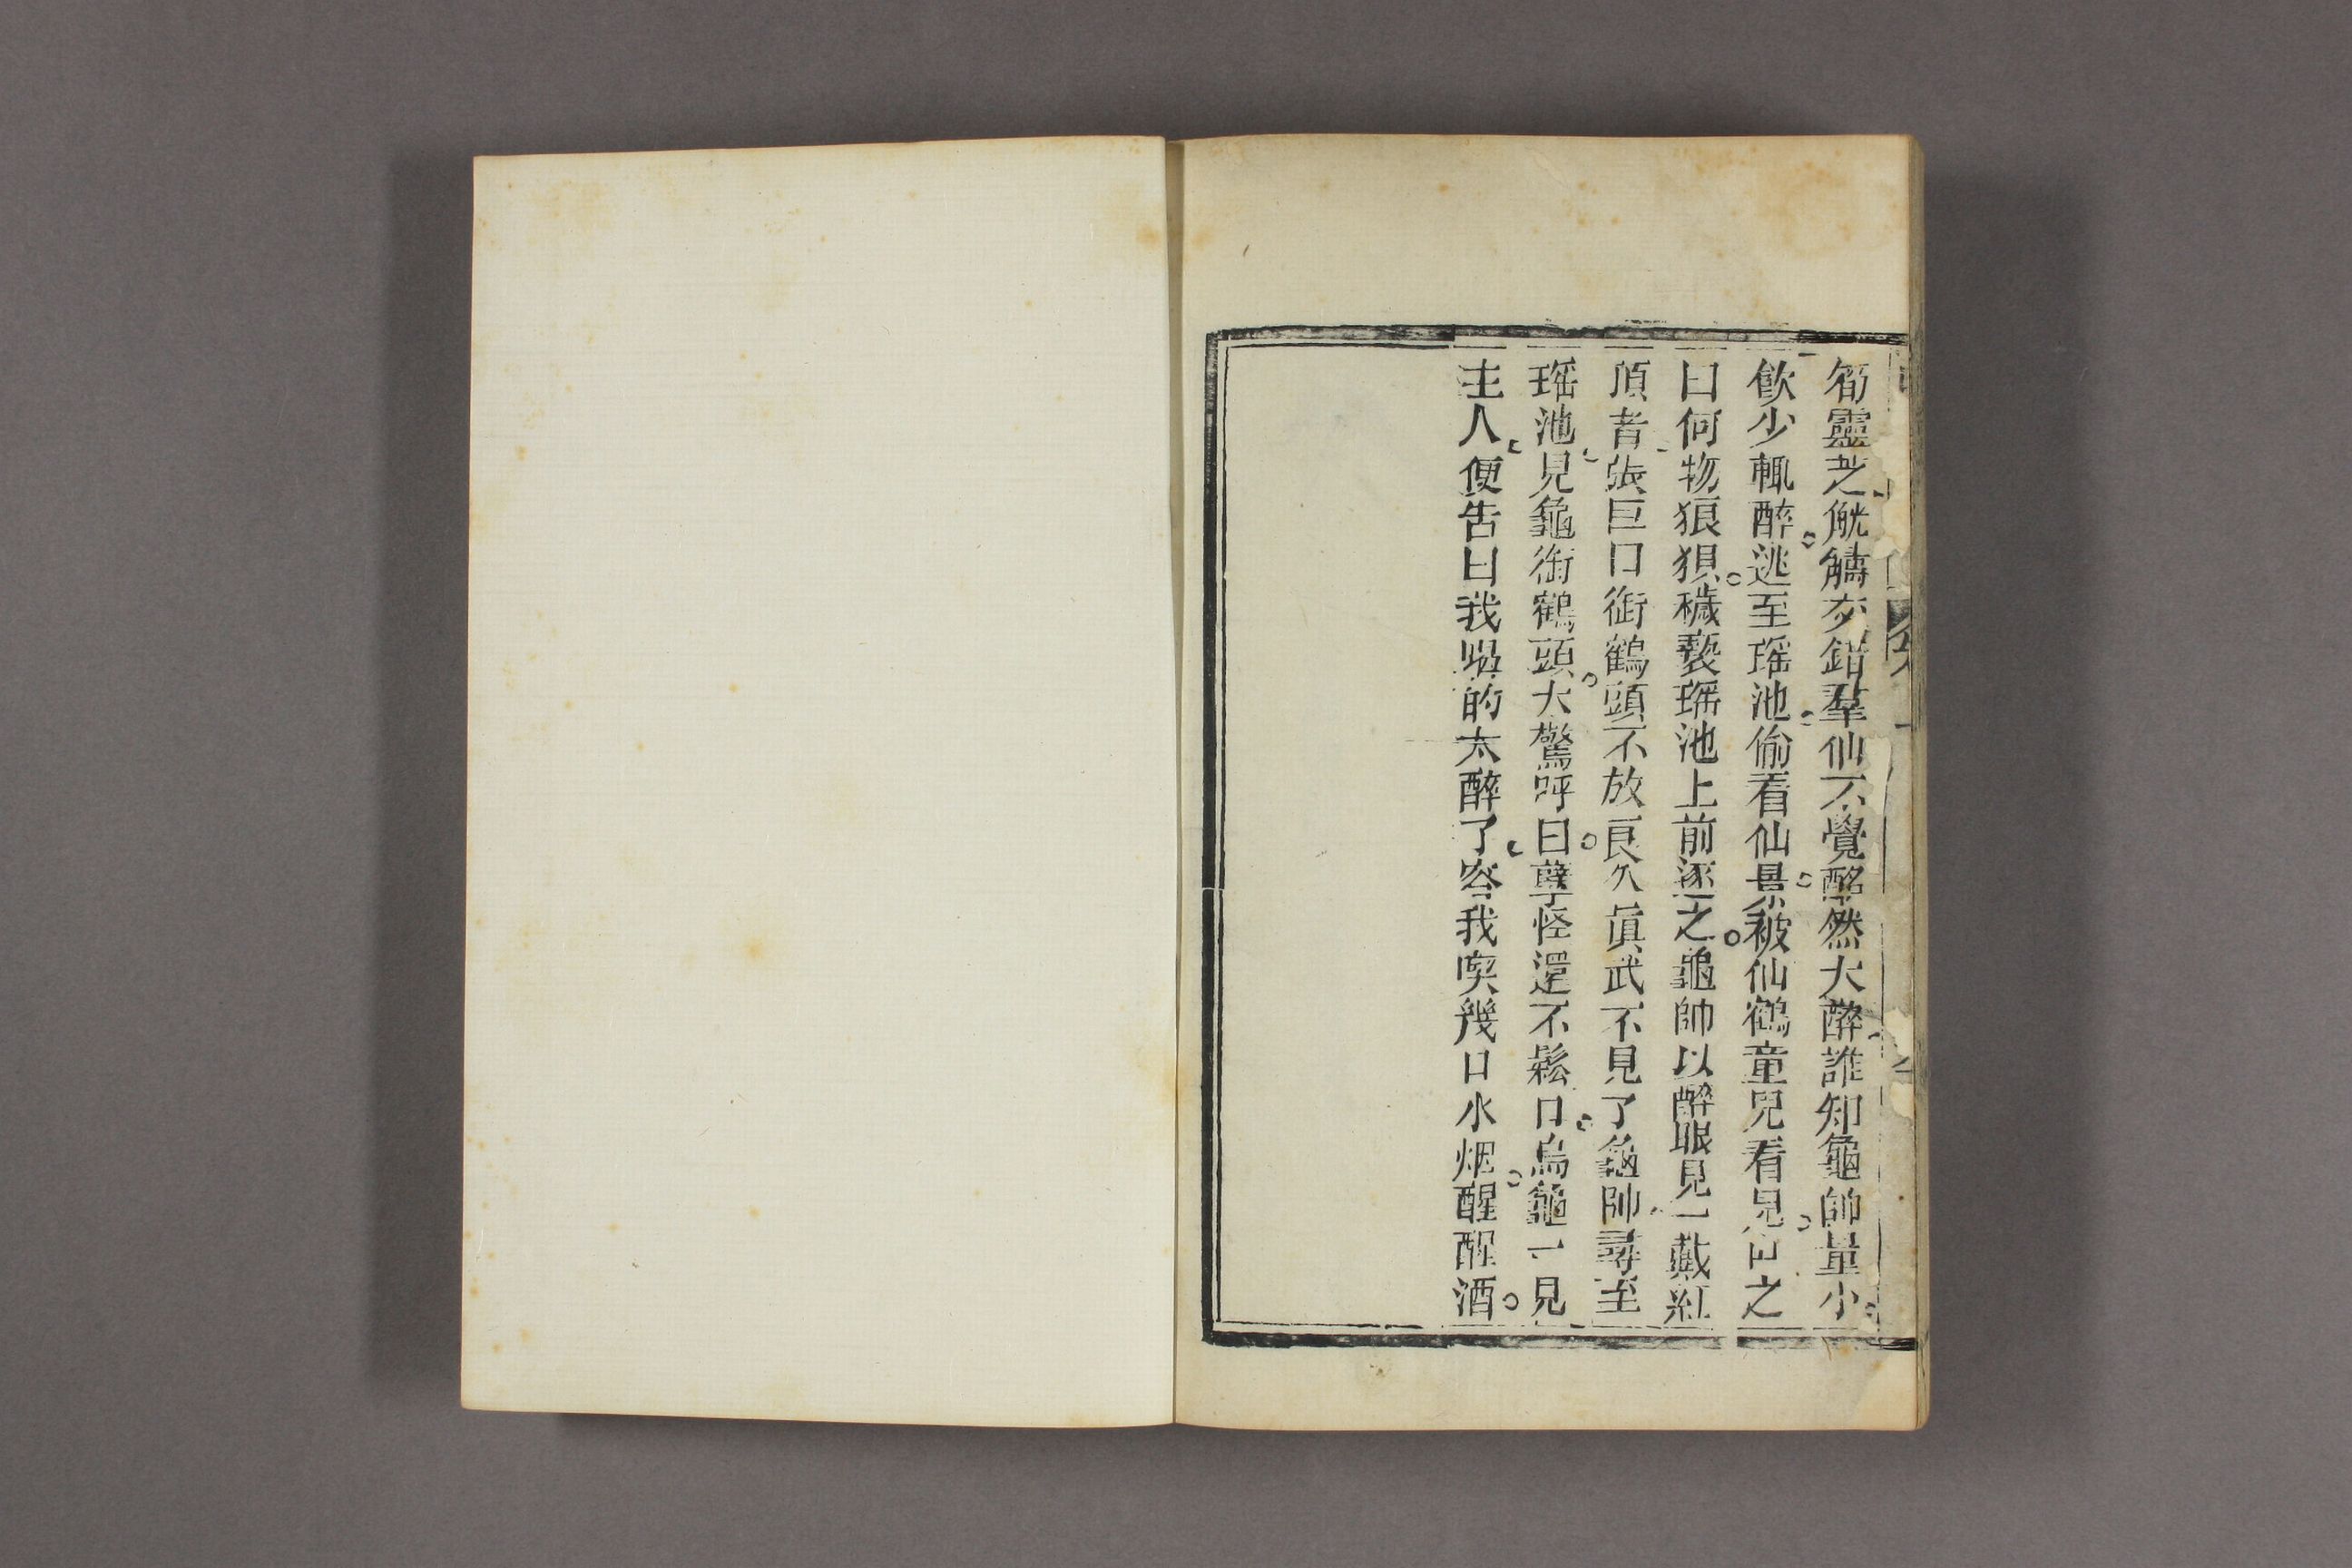 筍靈芝觥籌交錯羣仙不覺酩然大醉誰知龜帥量小
飲少輒醉逃至瑶池偷看仙景被仙鶴童兒看見叱之
曰何物狼狽穢褻瑶池上前逐之龜帥以醉眼見一戴紅
頂者張巨口銜鶴頭不放良久眞武不見了龜帥尋至
瑶池見龜銜鶴頭大驚呼曰孽怪還不鬆口烏龜一見
主人便告曰我吸的太醉了容我喫幾口水烟醒醒酒